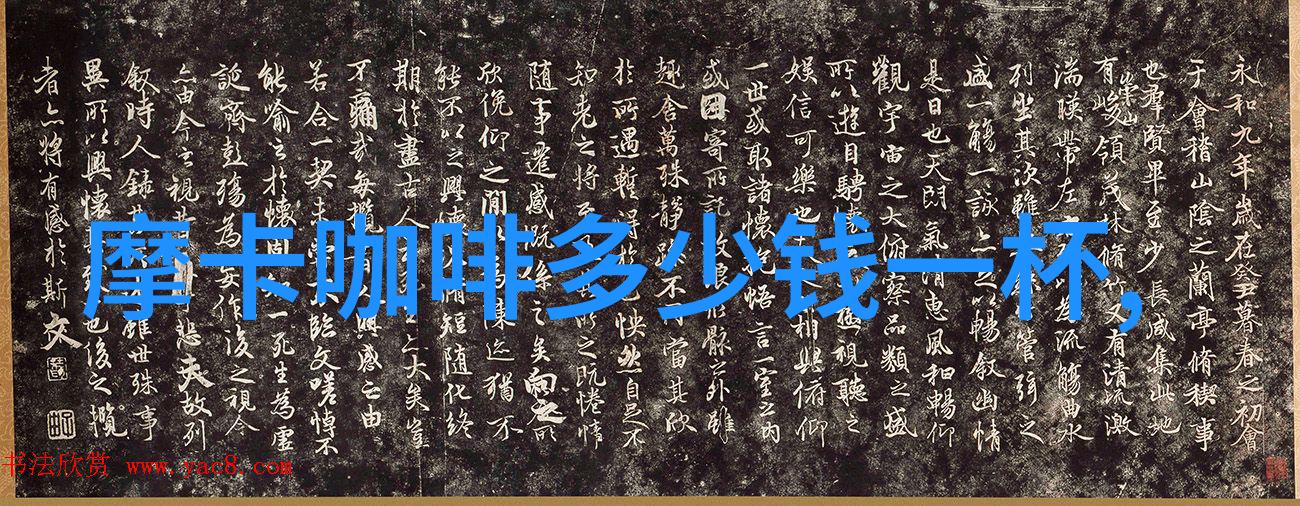 永和九年歲在癸丑暮春之初會
于會稽山陰之蘭亭脩稧事
也羣賢畢至少長咸集此地
有崇山峻領茂林脩竹又有清流激
湍暎帶左流觴曲水
列坐其次雖管弦之
盛一觴一詠亦足以暢叙幽情
是日也天朗氣清惠風和暢仰
觀宇宙之大俯察品類之盛
所以遊目騁極視聽之
娛信可樂也相與俯仰
一世或取諸懷抱悟言一室之內
或因寄所託放浪形骸之外雖
趣舍萬殊靜躁不同當其欣
於所遇暫得於己怏然自足不
知老之將至所之既惓情
隨事遷感慨係之矣向之所
欣俛仰之閒以為陳迹猶不
能不以之興懷脩短隨化終
期於盡古人大矣豈
不痛哉每攬興感之由
若合一契未嘗臨文嗟悼不
能喻之於懷固一死生為虛
誕齊彭殤為妄作後之視今
亦由今之視昔悲夫故列
叙時人錄其雖世殊事
異所以興懷也後之攬
者亦將有感於斯文
摩卡咖啡多少钱一杯,
书法欣赏 www.yac8.com